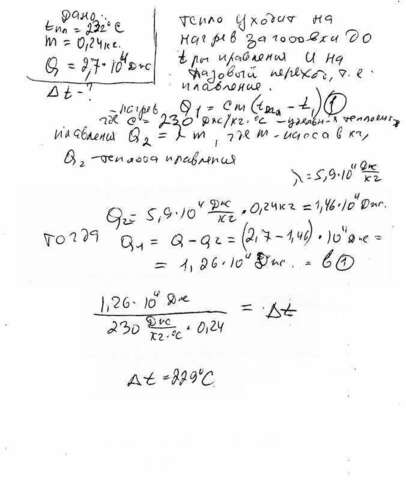 Дано:
tпл = 232°C
m = 0,24 кг.
Q = 2,7·10⁴ Дж
Δt - ?
тепло уходит на
нагрев заготовки до
t плавления и на
фазовый переход, т.е.
плавление.
нагрев Q₁ = cm(tпл - t₁) ①
где c = 230 Дж/кг·°C - удельная
плавления Q₂ = λm, где m - масса в кг,
Q₂ - теплота плавления
λ = 5,9·10⁴ Дж/кг
Q₂ = 5,9·10⁴ Дж/кг · 0,24 кг = 1,46·10⁴ Дж.
тогда Q₁ = Q - Q₂ = (2,7 - 1,46)·10⁴ Дж =
= 1,26·10⁴ Дж. = в ①
1,26·10⁴ Дж / 230 Дж/кг·°C · 0,24 = Δt
Δt = 229°C